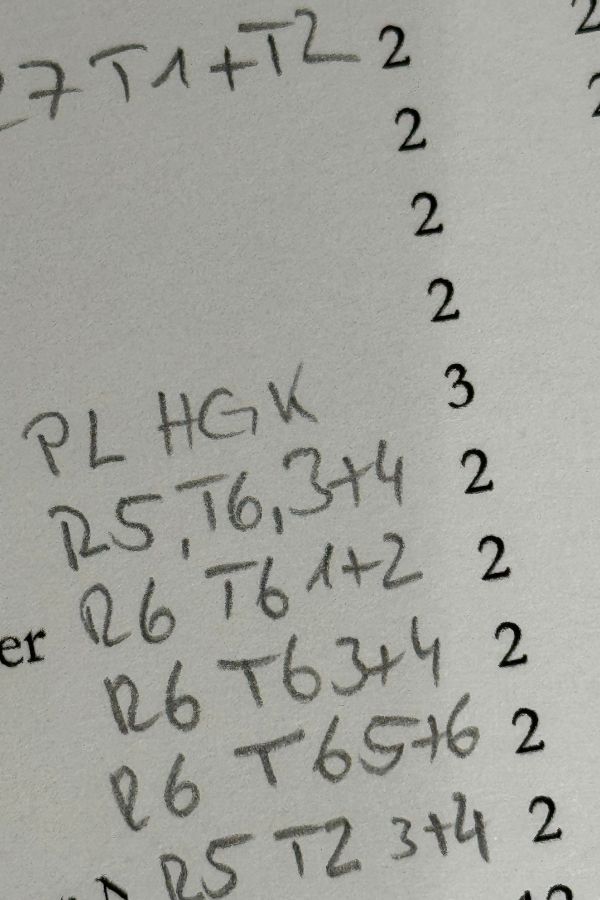 27 T1+T2 2
2
2
2
PL HGK 3
R5,T6,3+4 2
R6 T6 1+2 2
er R6 T6 3+4 2
R6 T6 5+6 2
R5 T2 3+4 2